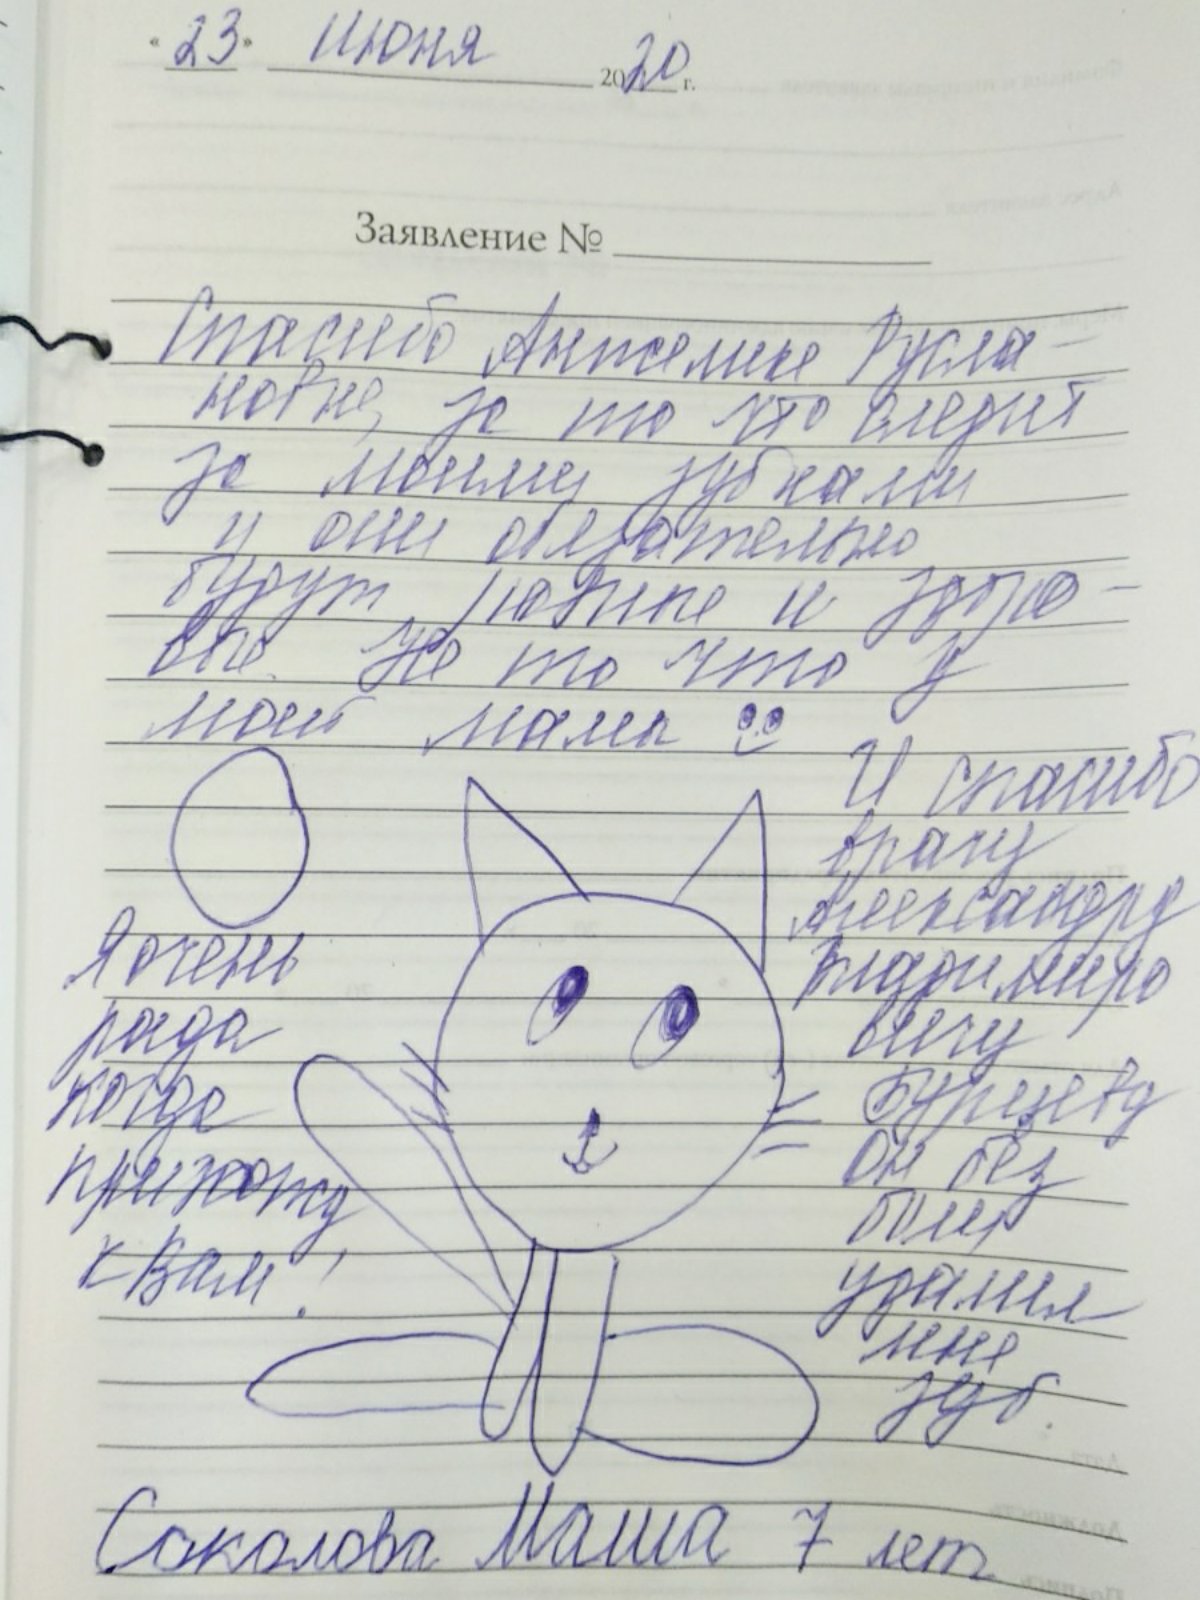 «23» Июня 2020 г.
Заявление №
Спасибо Анжелике Русла-
новне, за то что следит
за моими зубками
и они обязательно
будут ровные и здоро-
вые. Не то что у
моей мамы
И спасибо
врачу
Александру
Владимиро
вичу
Он без
боли
удалил
мне
зуб.
Я очень
рада
когда
прихожу
к Вам!
Соколова Маша 7 лет